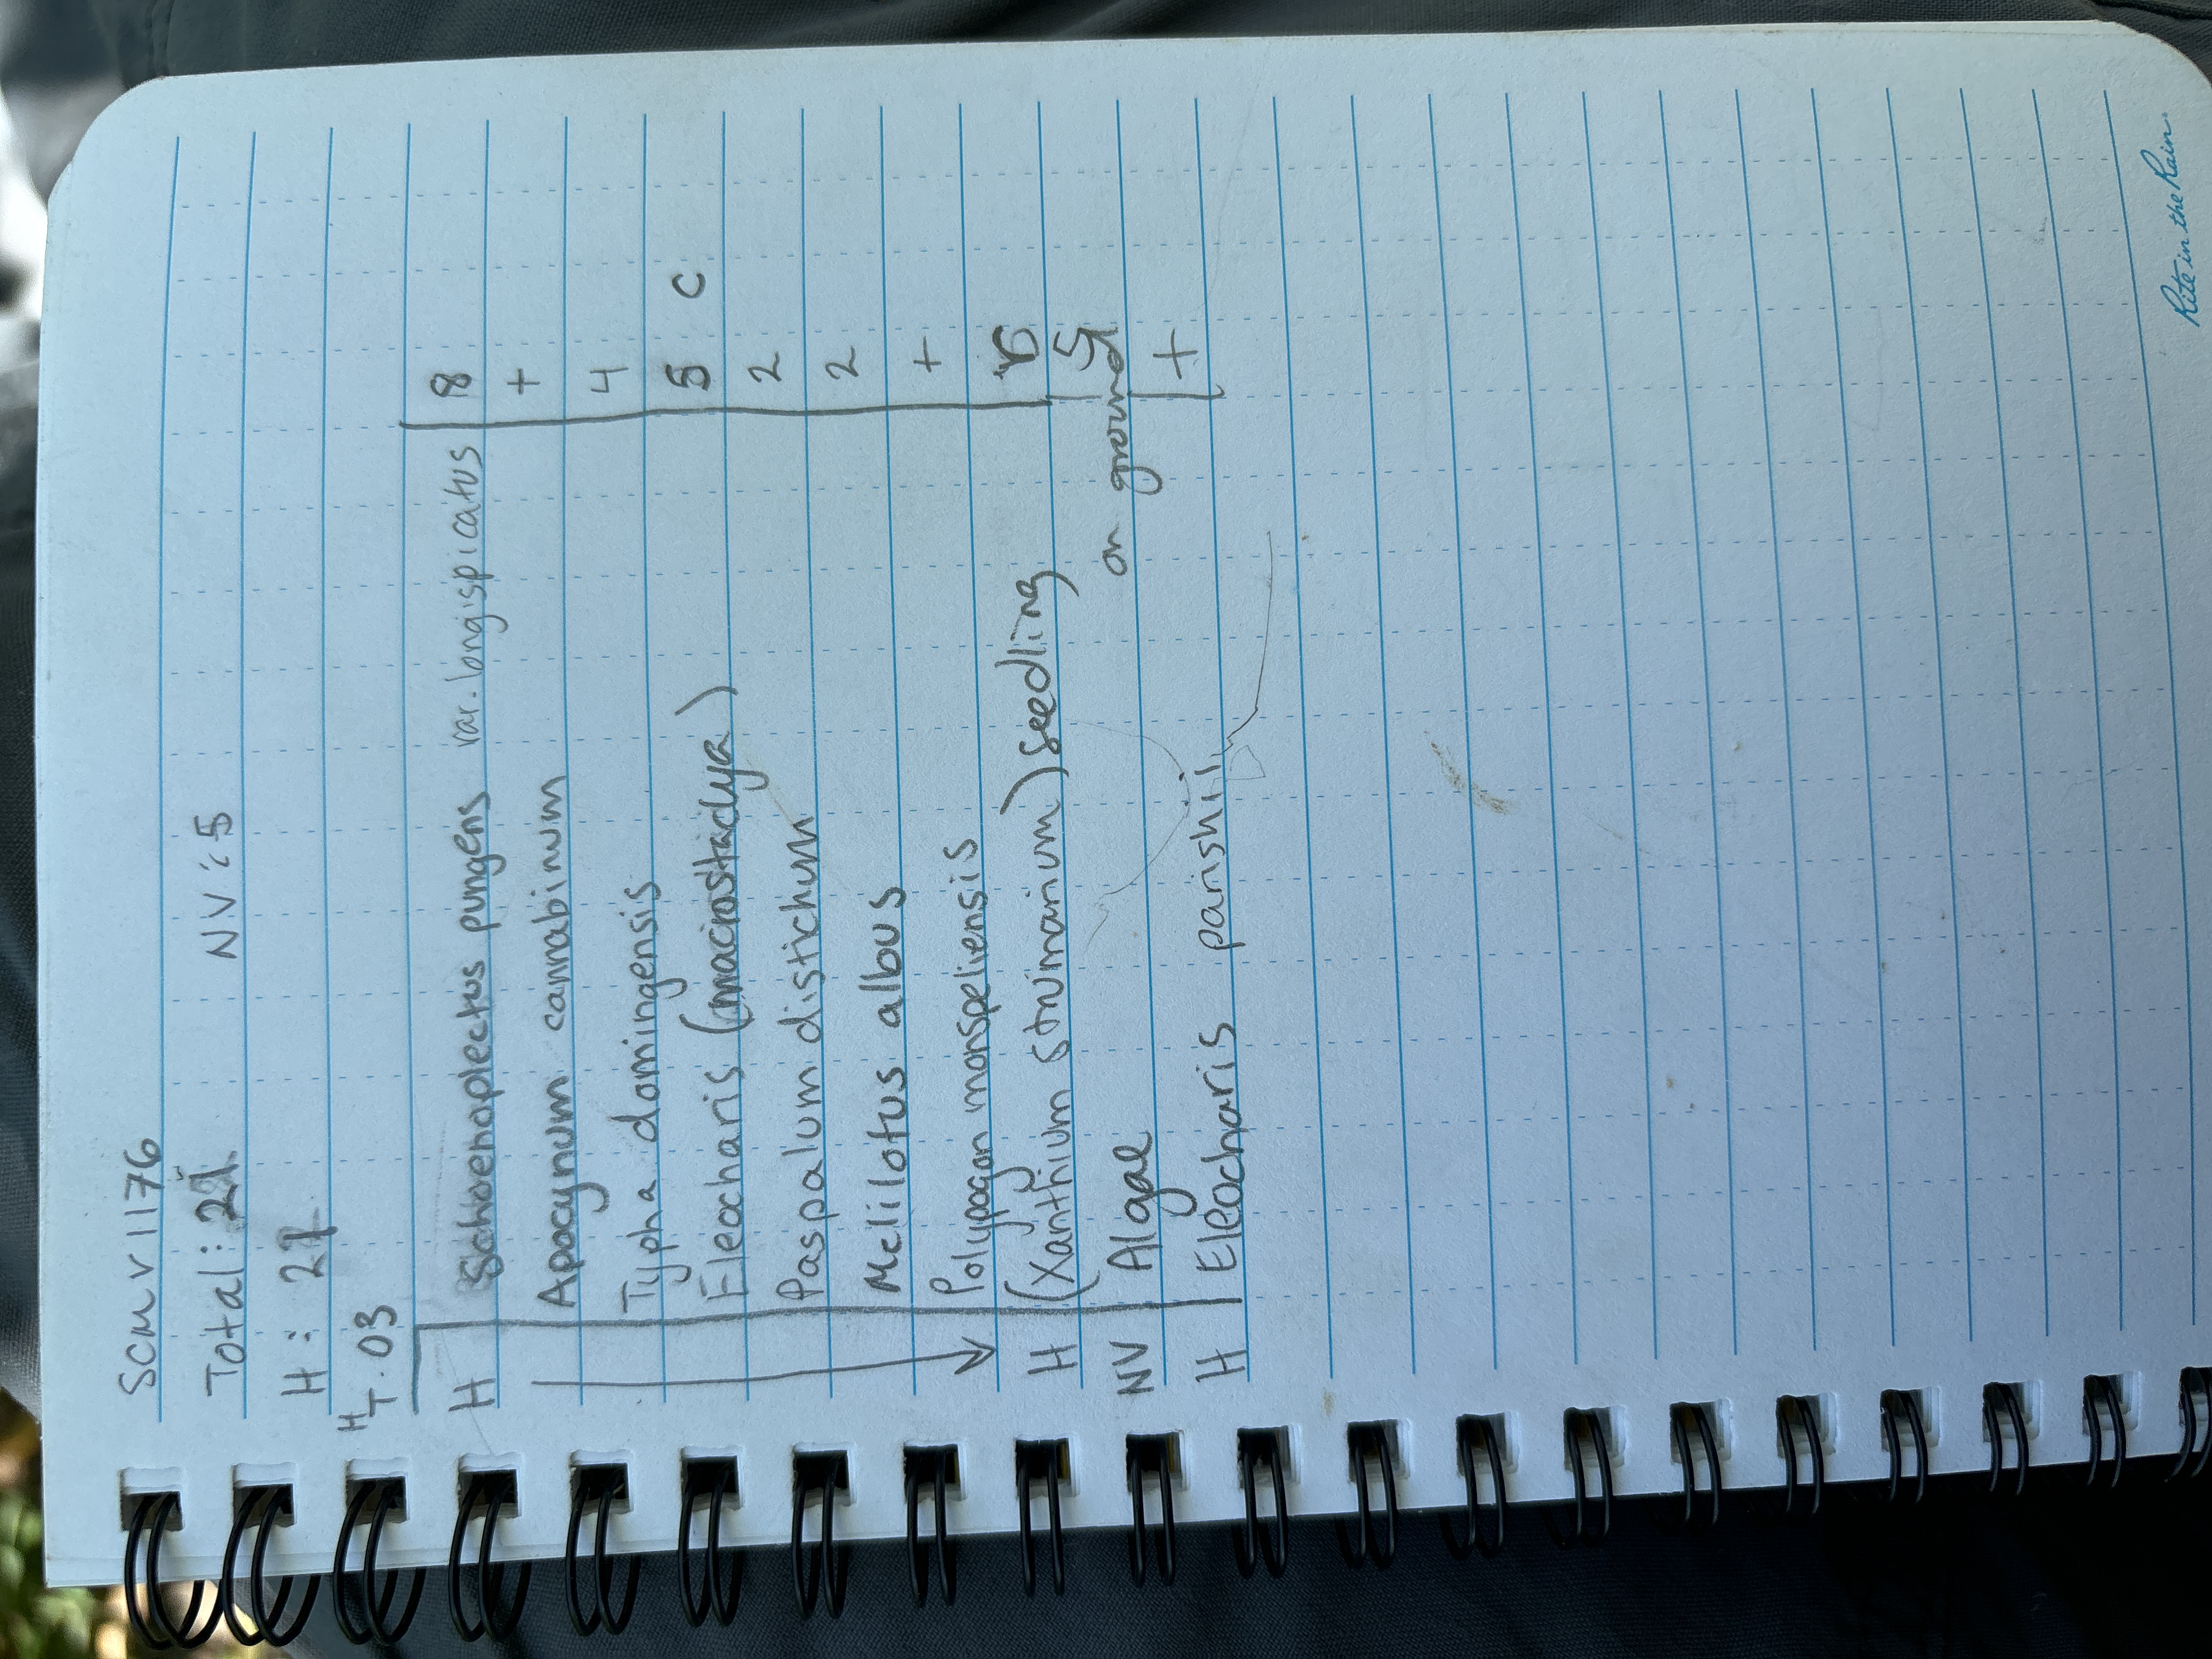 Scmv1176
Total: 21 NV: 5
H: 21
HT. 03
H Schoenoplectus pungens var. longispicatus 8
Apocynum cannabinum +
Typha domingensis 4
Eleocharis (macrostachya) 5 C
Paspalum distichum 2
Melilotus albus 2
Polypogon monspeliensis +
H (Xanthium strumarium) seedling
NV Algae on ground 5
H Eleocharis parishii +
Rite in the Rain.